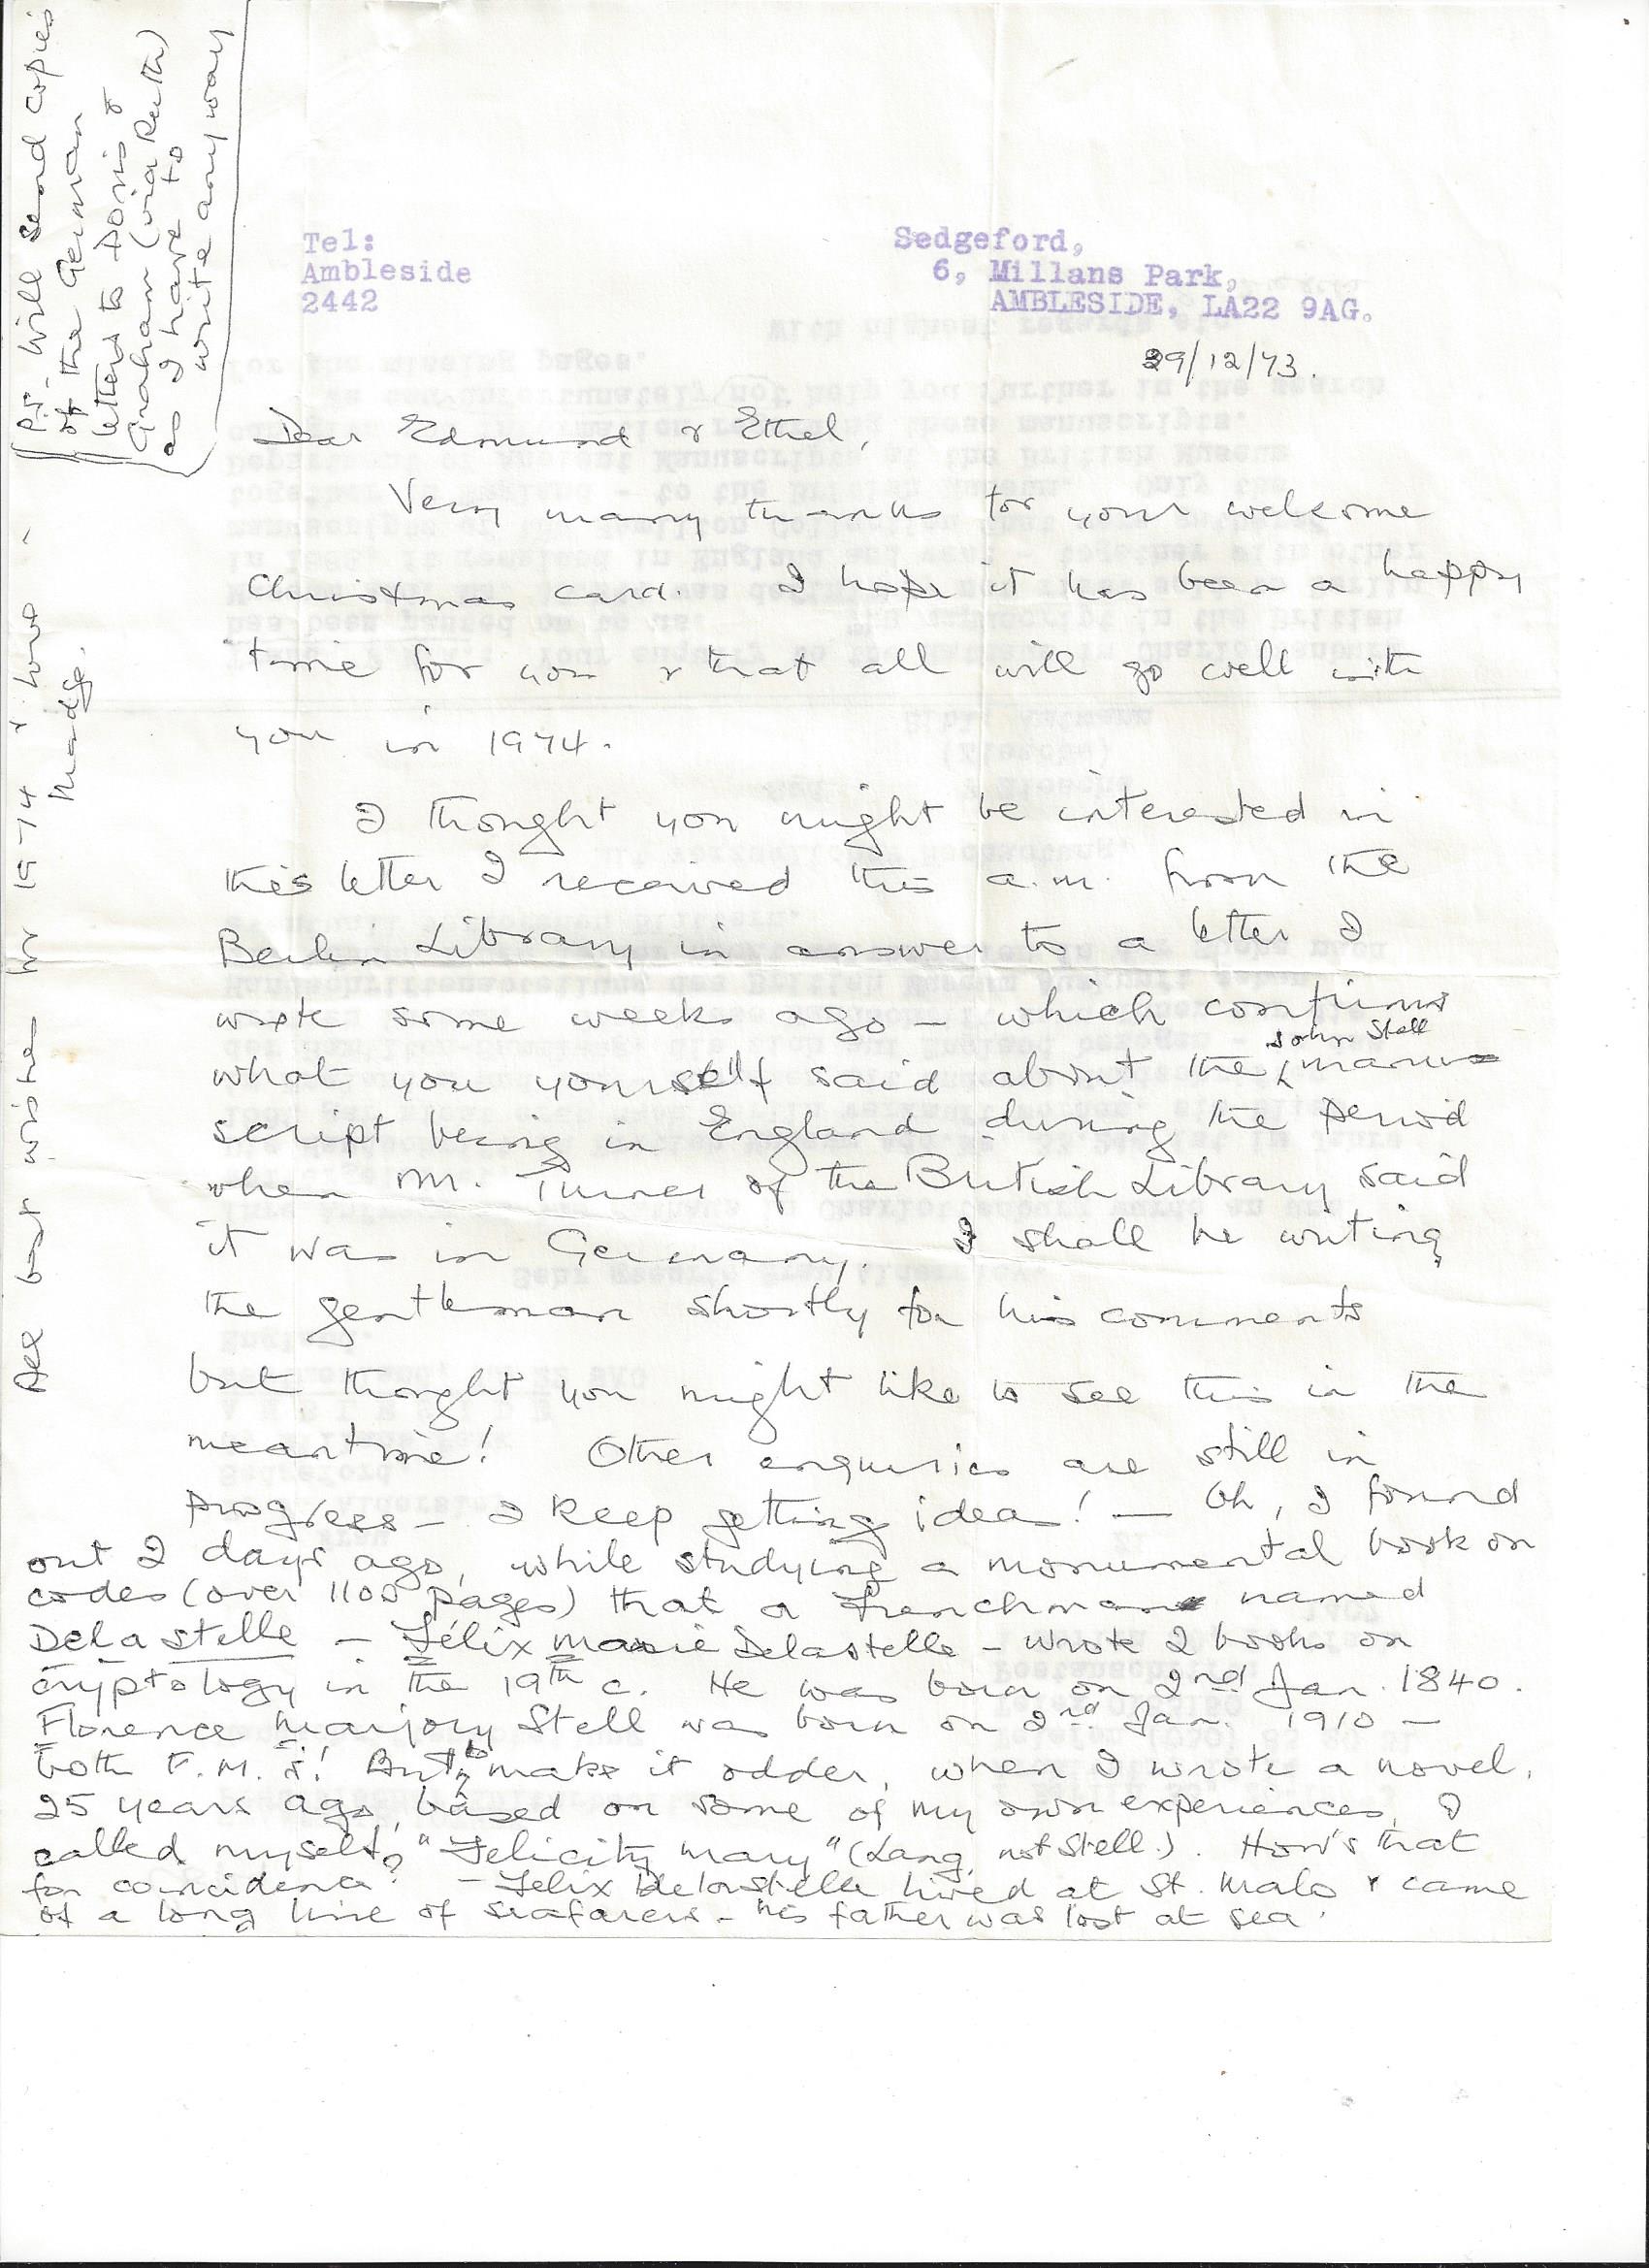 Tel:
Ambleside
2442
Sedgeford,
6, Millans Park,
AMBLESIDE, LA22 9AG.
29/12/73.
Dear Edmund & Ethel,
Very many thanks for your welcome
Christmas card. I hope it has been a happy
time for you & that all will go well with
you in 1974.
I thought you might be interested in
this letter I received this a.m. from the
Berlin Library in answer to a letter I
wrote some weeks ago – which confirms
what you yourself said about the John Stell manu-
script being in England during the period
when Mr. Turner of the British Library said
it was in Germany. I shall be writing
the gentleman shortly for his comments
but thought you might like to see this in the
meantime! Other enquiries are still in
progress – I keep getting ideas! — Oh, I found
out 2 days ago, while studying a monumental book on
codes (over 1100 pages) that a Frenchman named
Delastelle – Félix Marie Delastelle – wrote 2 books on
cryptology in the 19th c. He was born on 2nd Jan. 1840.
Florence Marjory Stell was born on 2nd Jan. 1910 –
both F. M. S! But, to make it odder, when I wrote a novel,
25 years ago, based on some of my own experiences, I
called myself "Felicity Mary" (Lang, not Stell.). How's that
for coincidence? – Felix Delastelle lived at St. Malo & came
of a long line of seafarers – his father was lost at sea.
All best wishes for 1974 & love –
Madge.
P.S. Will send copies
of the German
letters to Doris &
Graham (via Ruth)
as I have to
write any way